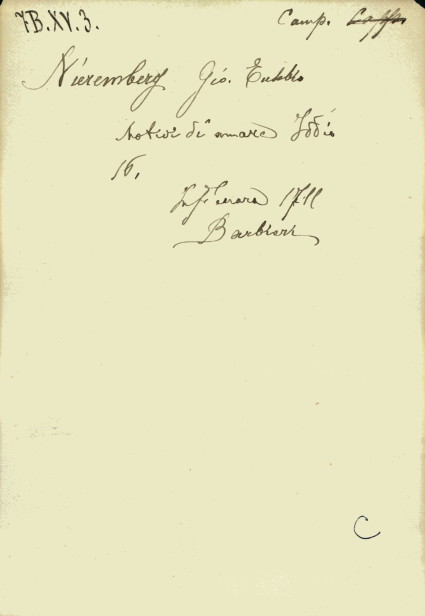 7B.XV.3.
Camp.
Nieremberg Gio. Eusebio
Motivi di amare Iddio
16,
In Ferrara 1711
Barbieri
C